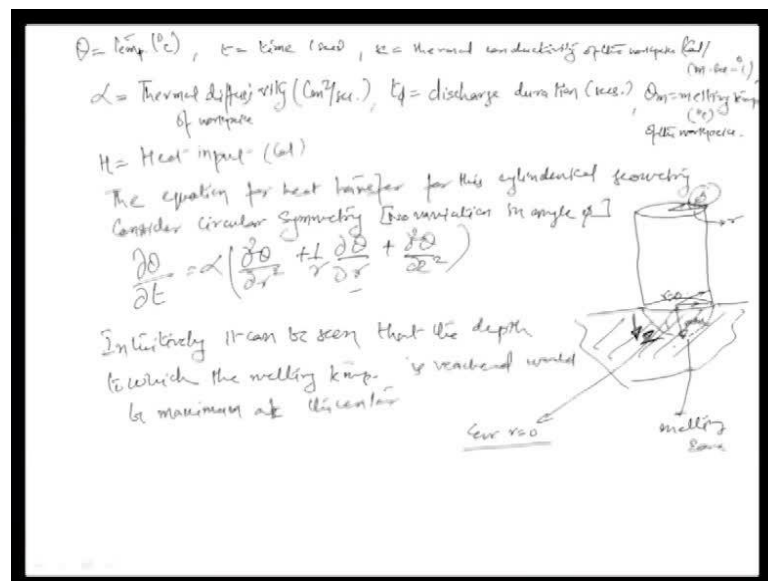 θ = Temp (°C), t = time (sec), k = thermal conductivity of the workpiece (Cal/
(cm-sec-°C),
α = Thermal diffusivity (Cm²/sec.), td = discharge duration (secs.), θm = melting temp
of workpiece (°C)
of the workpiece.
H = Heat input (Cal)
The equation for heat transfer for this cylindrical geometry
Consider Circular Symmetry [No variation in angle φ]
∂θ/∂t = α(∂²θ/∂r² + 1/r ∂θ/∂r + ∂²θ/∂z²)
Intuitively it can be seen that the depth
to which the melting temp. is reached would
be maximum at the center
r
z
for r=0
melting
zone